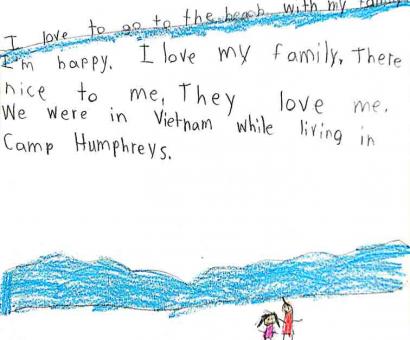 I love to go to the beach with my family
I'm happy. I love my family. There
nice to me. They love me.
We were in Vietnam while living in
Camp Humphreys.